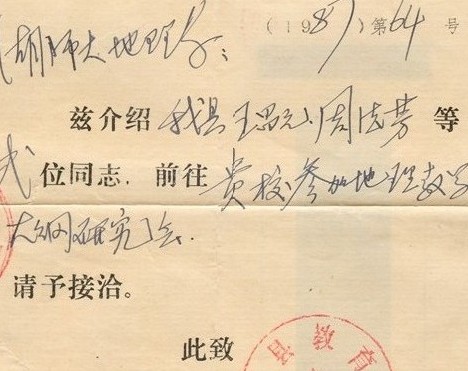 (1987)第64号
湖师大地理系:
兹介绍 我县王 周法芳 等
弍位同志,前往 贵校参加地理教学
大纲研究会.
请予接洽。
此致
教育